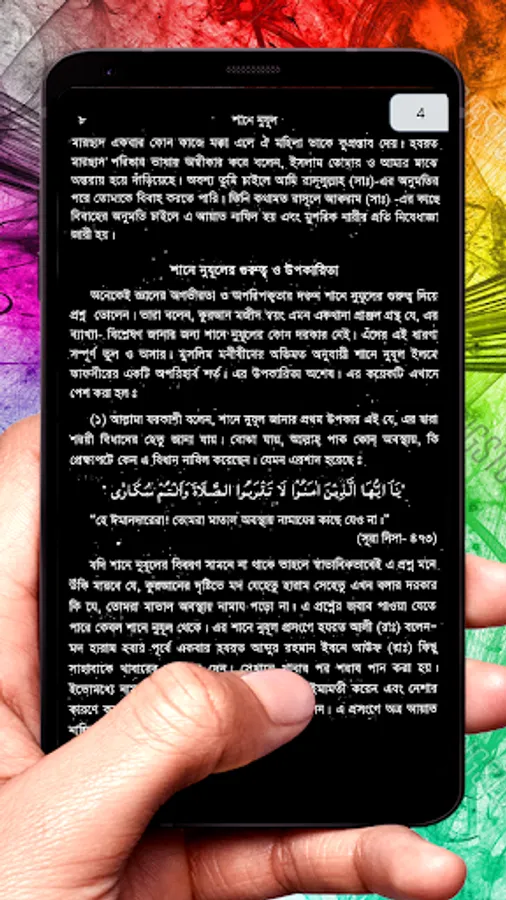 ৮
শানে নুযূল
4
মারছাদ একবার কোন কাজে মক্কা এলে ঐ মহিলা তাকে কুপ্রস্তাব দেয়। হযরত
মারছাদ পরিষ্কার ভাষায় অস্বীকার করে বলেন, ইসলাম তোমার ও আমার মাঝে
অন্তরায় হয়ে দাঁড়িয়েছে। অবশ্য তুমি চাইলে আমি রাসূলুল্লাহ্ (সাঃ)-এর অনুমতির
পরে তোমাকে বিবাহ করতে পারি। তিনি কথামত রাসূলে আকরাম (সাঃ) -এর কাছে
বিবাহের অনুমতি চাইলে এ আয়াত নাযিল হয় এবং মুশরিক নারীর প্রতি নিষেধাজ্ঞা
জারী হয়।
শানে নুযূলের গুরুত্ব ও উপকারিতা
অনেকেই জ্ঞানের অগভীরতা ও অপরিপক্কতার দরুণ শানে নুযূলের গুরুত্ব নিয়ে
প্রশ্ন তোলেন। তারা বলেন, কুরআন মজীদ স্বয়ং এমন একখানা প্রাঞ্জল গ্রন্থ যে, এর
ব্যাখ্যা- বিশ্লেষণ জানার জন্য শানে নুযূলের কোন দরকার নেই। এঁদের এই ধারণা
সম্পূর্ণ ভুল ও অসার। মুসলিম মনীষীদের অভিমত অনুযায়ী শানে নুযূল ইলমে
তাফসীরের একটি অপরিহার্য শর্ত। এর উপকারিতা অশেষ। এর কয়েকটি এখানে
পেশ করা হল ঃ
(১) আল্লামা যরকাশী বলেন, শানে নুযূল জানার প্রথম উপকার এই যে, এর দ্বারা
শরয়ী বিধানের হেতু জানা যায়। বোঝা যায়, আল্লাহ্ পাক কোন্ অবস্থায়, কি
প্রেক্ষাপটে কেন এ বিধান নাযিল করেছেন। যেমন এরশাদ হয়েছে ঃ
"يَا اَيُّهَا الَّذِيْنَ اٰمَنُوْا لَا تَقْرَبُوا الصَّلَاةَ وَاَنْتُمْ سُكَارٰى"
"হে ঈমানদারেরা! তোমরা মাতাল অবস্থায় নামাযের কাছে যেও না।"
(সূরা নিসা- ৪৩)
যদি শানে নুযূলের বিবরণ সামনে না থাকে তাহলে স্বাভাবিকভাবেই এ প্রশ্ন মনে
উঁকি মারবে যে, কুরআনের দৃষ্টিতে মদ যেহেতু হারাম সেহেতু এখন বলার দরকার
কি যে, তোমরা মাতাল অবস্থায় নামায পড়ো না। এ প্রশ্নের জবাব পাওয়া যেতে
পারে কেবল শানে নুযূল থেকে। এর শানে নুযূল প্রসংগে হযরত আলী (রাঃ) বলেন-
মদ হারাম হবার পূর্বে একবার হযরত আব্দুর রহমান ইবনে আউফ (রাঃ) কিছু
সাহাবাকে খাবারের দেন। সেখানে খাবার পর শরাব পান করা হয়।
ইতোমধ্যে ইমামতী করেন এবং নেশার
কারণে এ প্রসংগে অত্র আয়াত